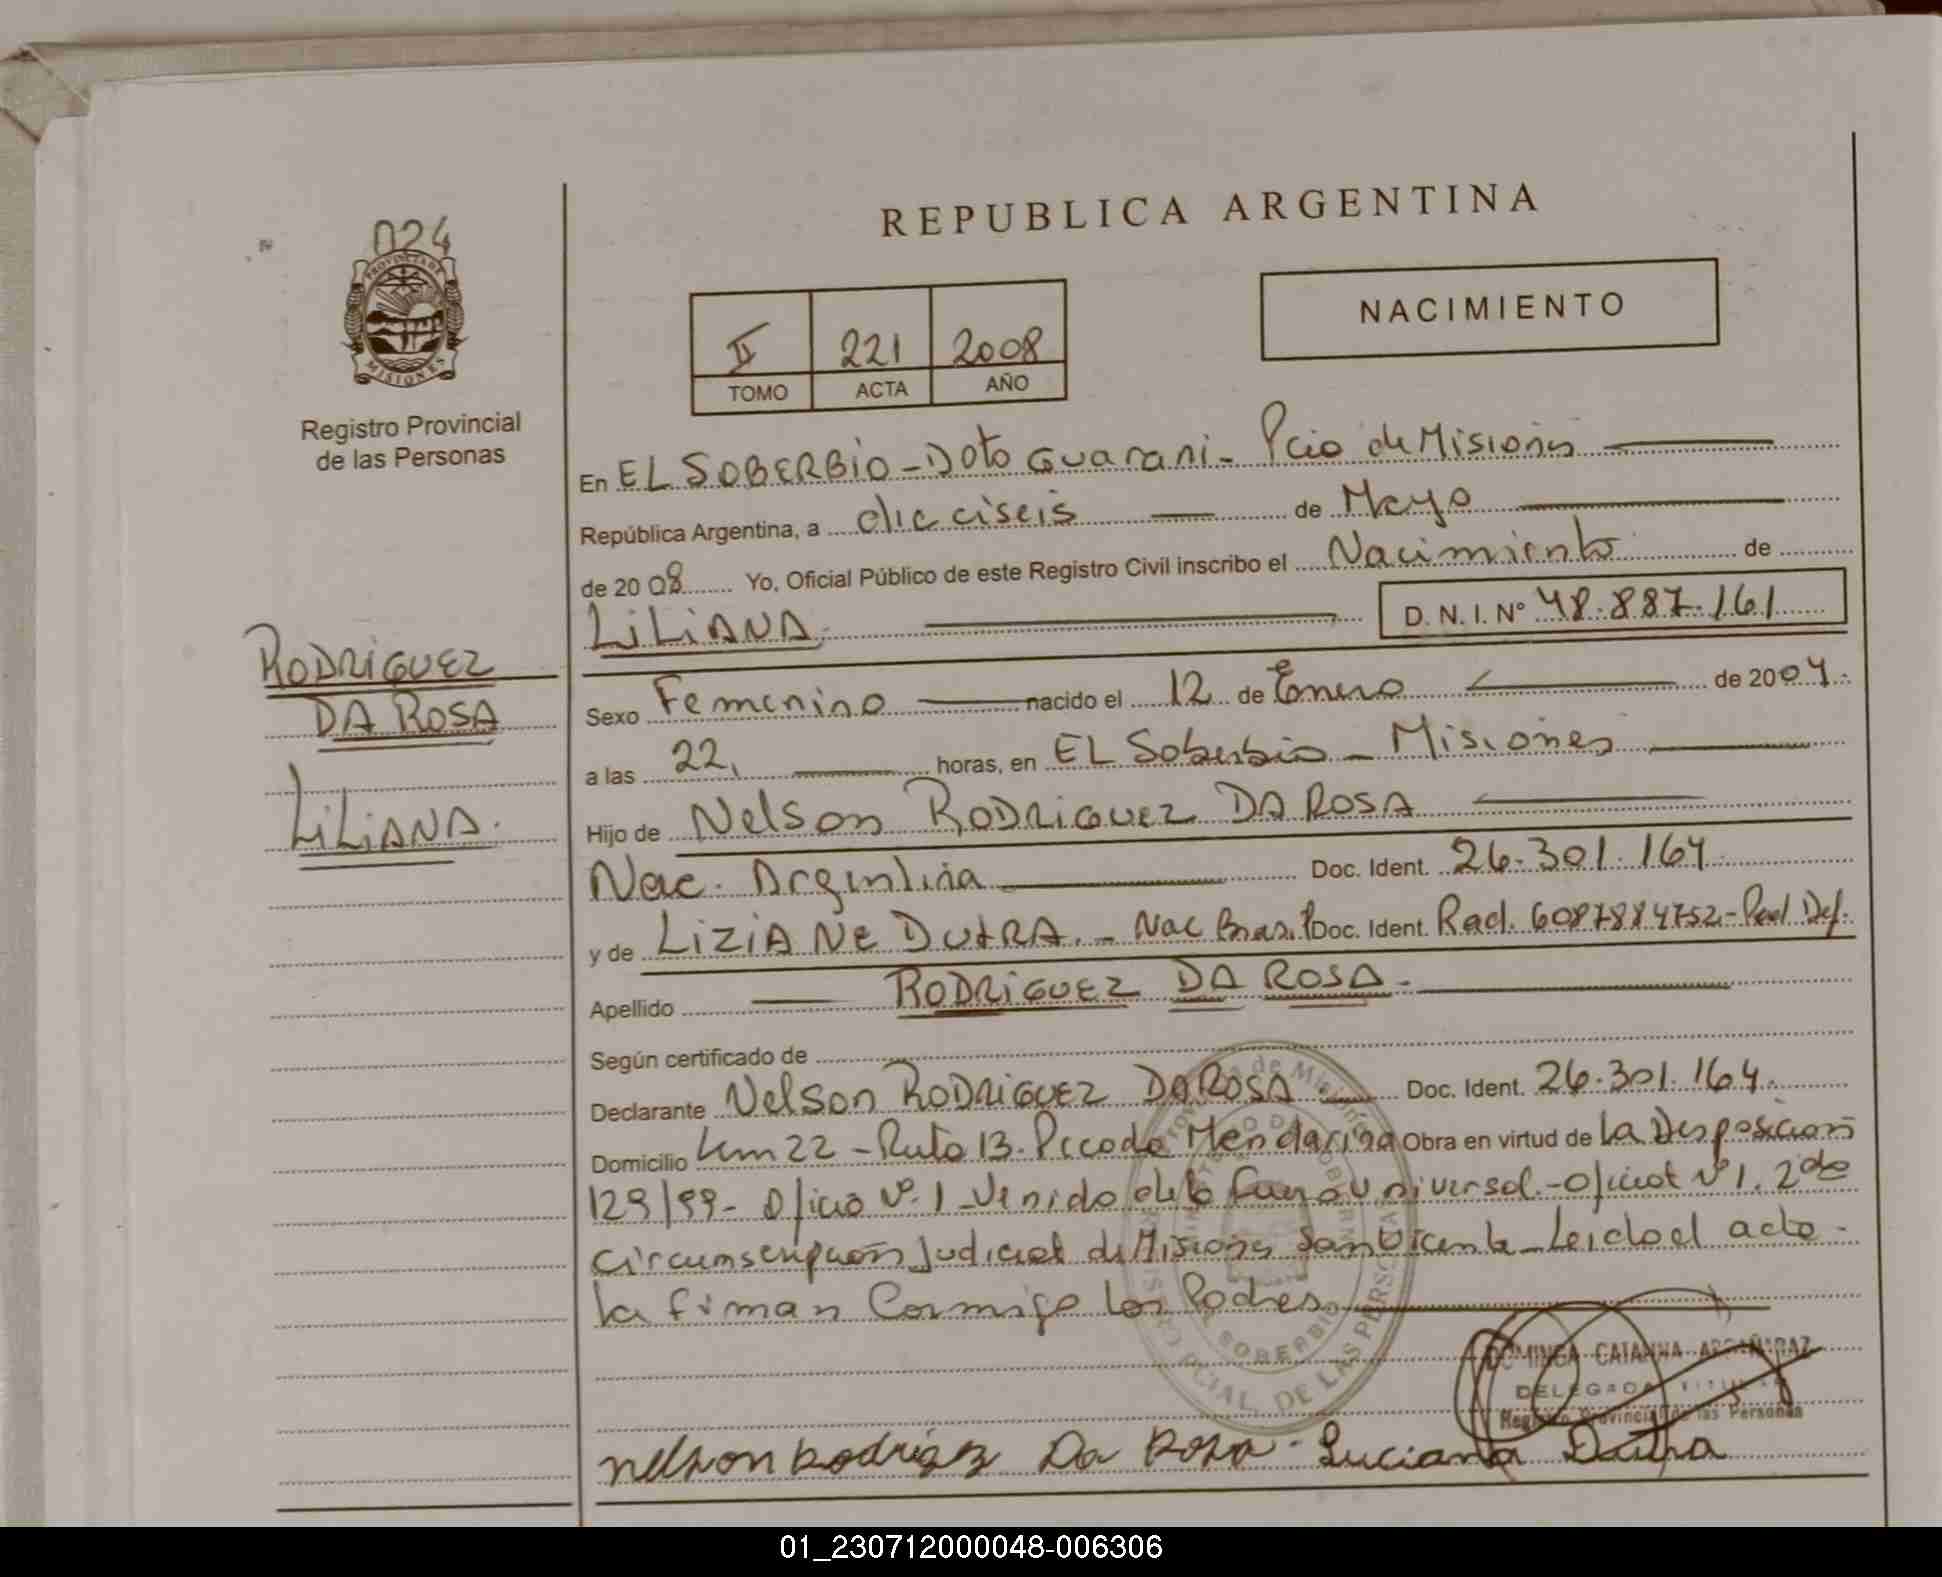 REPUBLICA ARGENTINA
024
PROVINCIA DE
MISIONES
Registro Provincial
de las Personas
II 221 2008
TOMO ACTA AÑO
NACIMIENTO
En EL SOBERBIO - Dpto Guarani - Pcia de Misiones
República Argentina, a dieciseis de Mayo
de 2008 Yo, Oficial Público de este Registro Civil inscribo el Nacimiento de
LiLiANA. D. N. I. Nº 48.887.161
RODRiGUEZ
DA ROSA
LiLiANA.
Sexo Femenino nacido el 12 de Enero de 2004.
a las 22, horas, en EL Soberbio - Misiones
Hijo de Nelson RODRiGUEZ DA ROSA
Nac. Argentina Doc. Ident. 26.301.164
y de LiZiANE DUTRA. - Nac Brasil Doc. Ident. Rad. 6087884752.-
Apellido RODRiGUEZ DA ROSA.-
Según certificado de
Declarante Nelson RODRiGUEZ DA ROSA Doc. Ident. 26.301.164.
Domicilio Km 22 - Ruta 13. Picada Mandarina Obra en virtud de La Disposicion
129/99- Oficio Nº.1 - Venido de la Universal.- Nº1. 2da
Circunscripcion Judicial de Misiones San Vicente - Leida el acta
la firman Conmigo los Padres.
DOMINGA CATALINA ARGAÑARAZ
DELEGADA TITULAR
Registro Provincial de las Personas
nelson Rodriguez Da Rosa - Luciana Dutra
01_230712000048-006306